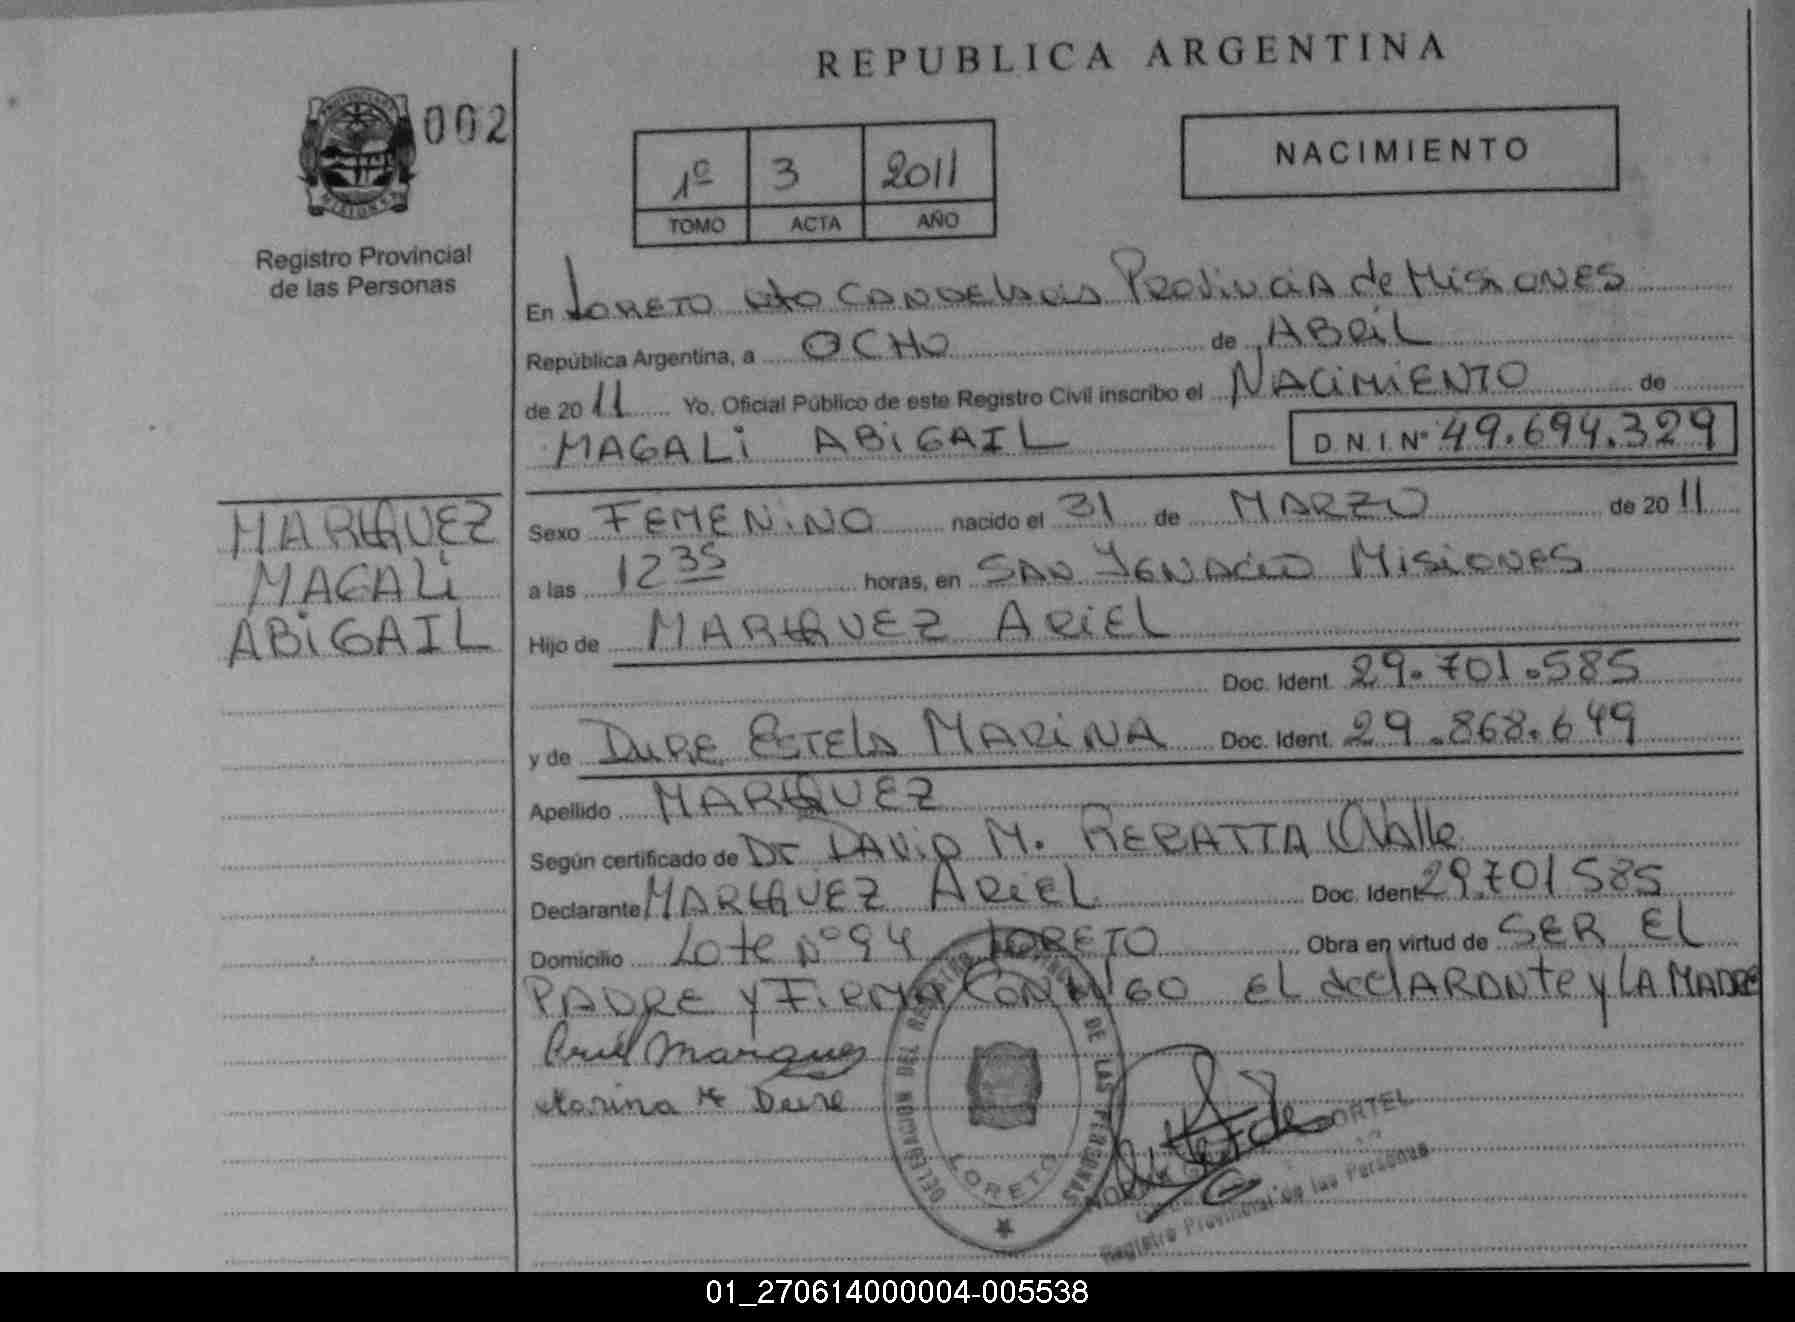 REPUBLICA ARGENTINA
002
NACIMIENTO
1º 3 2011
TOMO ACTA AÑO
Registro Provincial
de las Personas
En LORETO Dto CANDELARIA PROVINCIA de MISIONES
República Argentina, a OCHO de ABRIL
de 20 11 Yo, Oficial Público de este Registro Civil inscribo el NACIMIENTO de
MAGALI ABIGAIL D.N.I. Nº 49.694.329
MARQUEZ
MAGALI
ABIGAIL
Sexo FEMENINO nacido el 31 de MARZO de 20 11
a las 12 35 horas, en SAN IGNACIO MISIONES
Hijo de MARQUEZ ARIEL
Doc. Ident. 29.701.585
y de DURE ESTELA MARINA Doc. Ident. 29.868.649
Apellido MARQUEZ
Según certificado de Dr DAVID M. REBATTA OValle
Declarante MARQUEZ ARIEL Doc. Ident 29.701585
Domicilio Lote Nº 94 LORETO Obra en virtud de SER EL
PADRE Y FIRMA CONMIGO EL declARANte y LA MADRE
Ariel Marquez
Marina Dure
DELEGACION DEL REGISTRO DE LAS PERSONAS
LORETO
Registro Provincial de las Personas
01_270614000004-005538